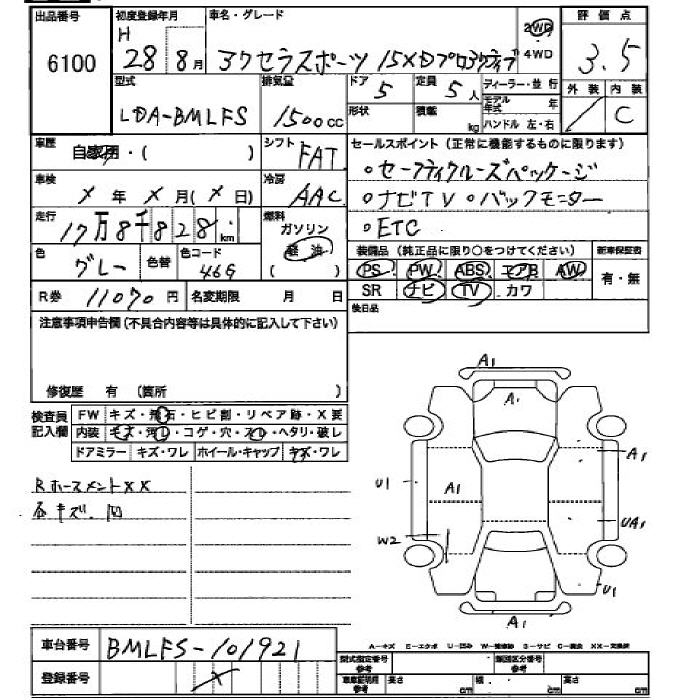 出品番号 初度登録年月 車名・グレード 2WD 評価点
6100 H 28 8月 アクセラスポーツ 15XDプロアクティブ 4WD 3.5
型式 排気量 ドア 5 定員 5人 ディーラー・並行 外装 内装
LDA-BMLFS 1500cc 形状 積載 kg モデル年式 年 C
ハンドル 左・右
車歴 自家用・( ) シフト FAT セールスポイント(正常に機能するものに限ります)
車検 X年X月(X日) 冷房 AAC 。セーフティクルーズパッケージ
走行 17万8千828km 燃料 ガソリン 軽油 ( ) 。ナビTV 。バックモニター
。ETC
色 グレー 色替 色コード 46G 装備品(純正品に限り○をつけてください) 新車保証書
PS PW ABS エアB AW 有・無
R券 11070円 名変期限 月 日 SR ナビ TV カワ
注意事項申告欄(不具合内容等は具体的に記入して下さい) 後日品
修復歴 有 (箇所 )
検査員記入欄 FW キズ・飛石・ヒビ割・リペア跡・X要
内装 キズ・汚レ・コゲ・穴・スレ・ヘタリ・破レ
ドアミラー キズ・ワレ ホイール・キャップ キズ・ワレ
Rホースメント XX
各キズ.凹
A1
A1
A1
U1 A1
UA1
W2
U1
A1
A-キズ E-エクボ U-凹み W-補修跡 S-サビ C-腐食 XX-交換済
車台番号 BMLFS-101921 型式指定番号 参考 類別区分番号 参考
登録番号 X 車庫証明用 参考 高さ cm 幅 cm 長さ cm